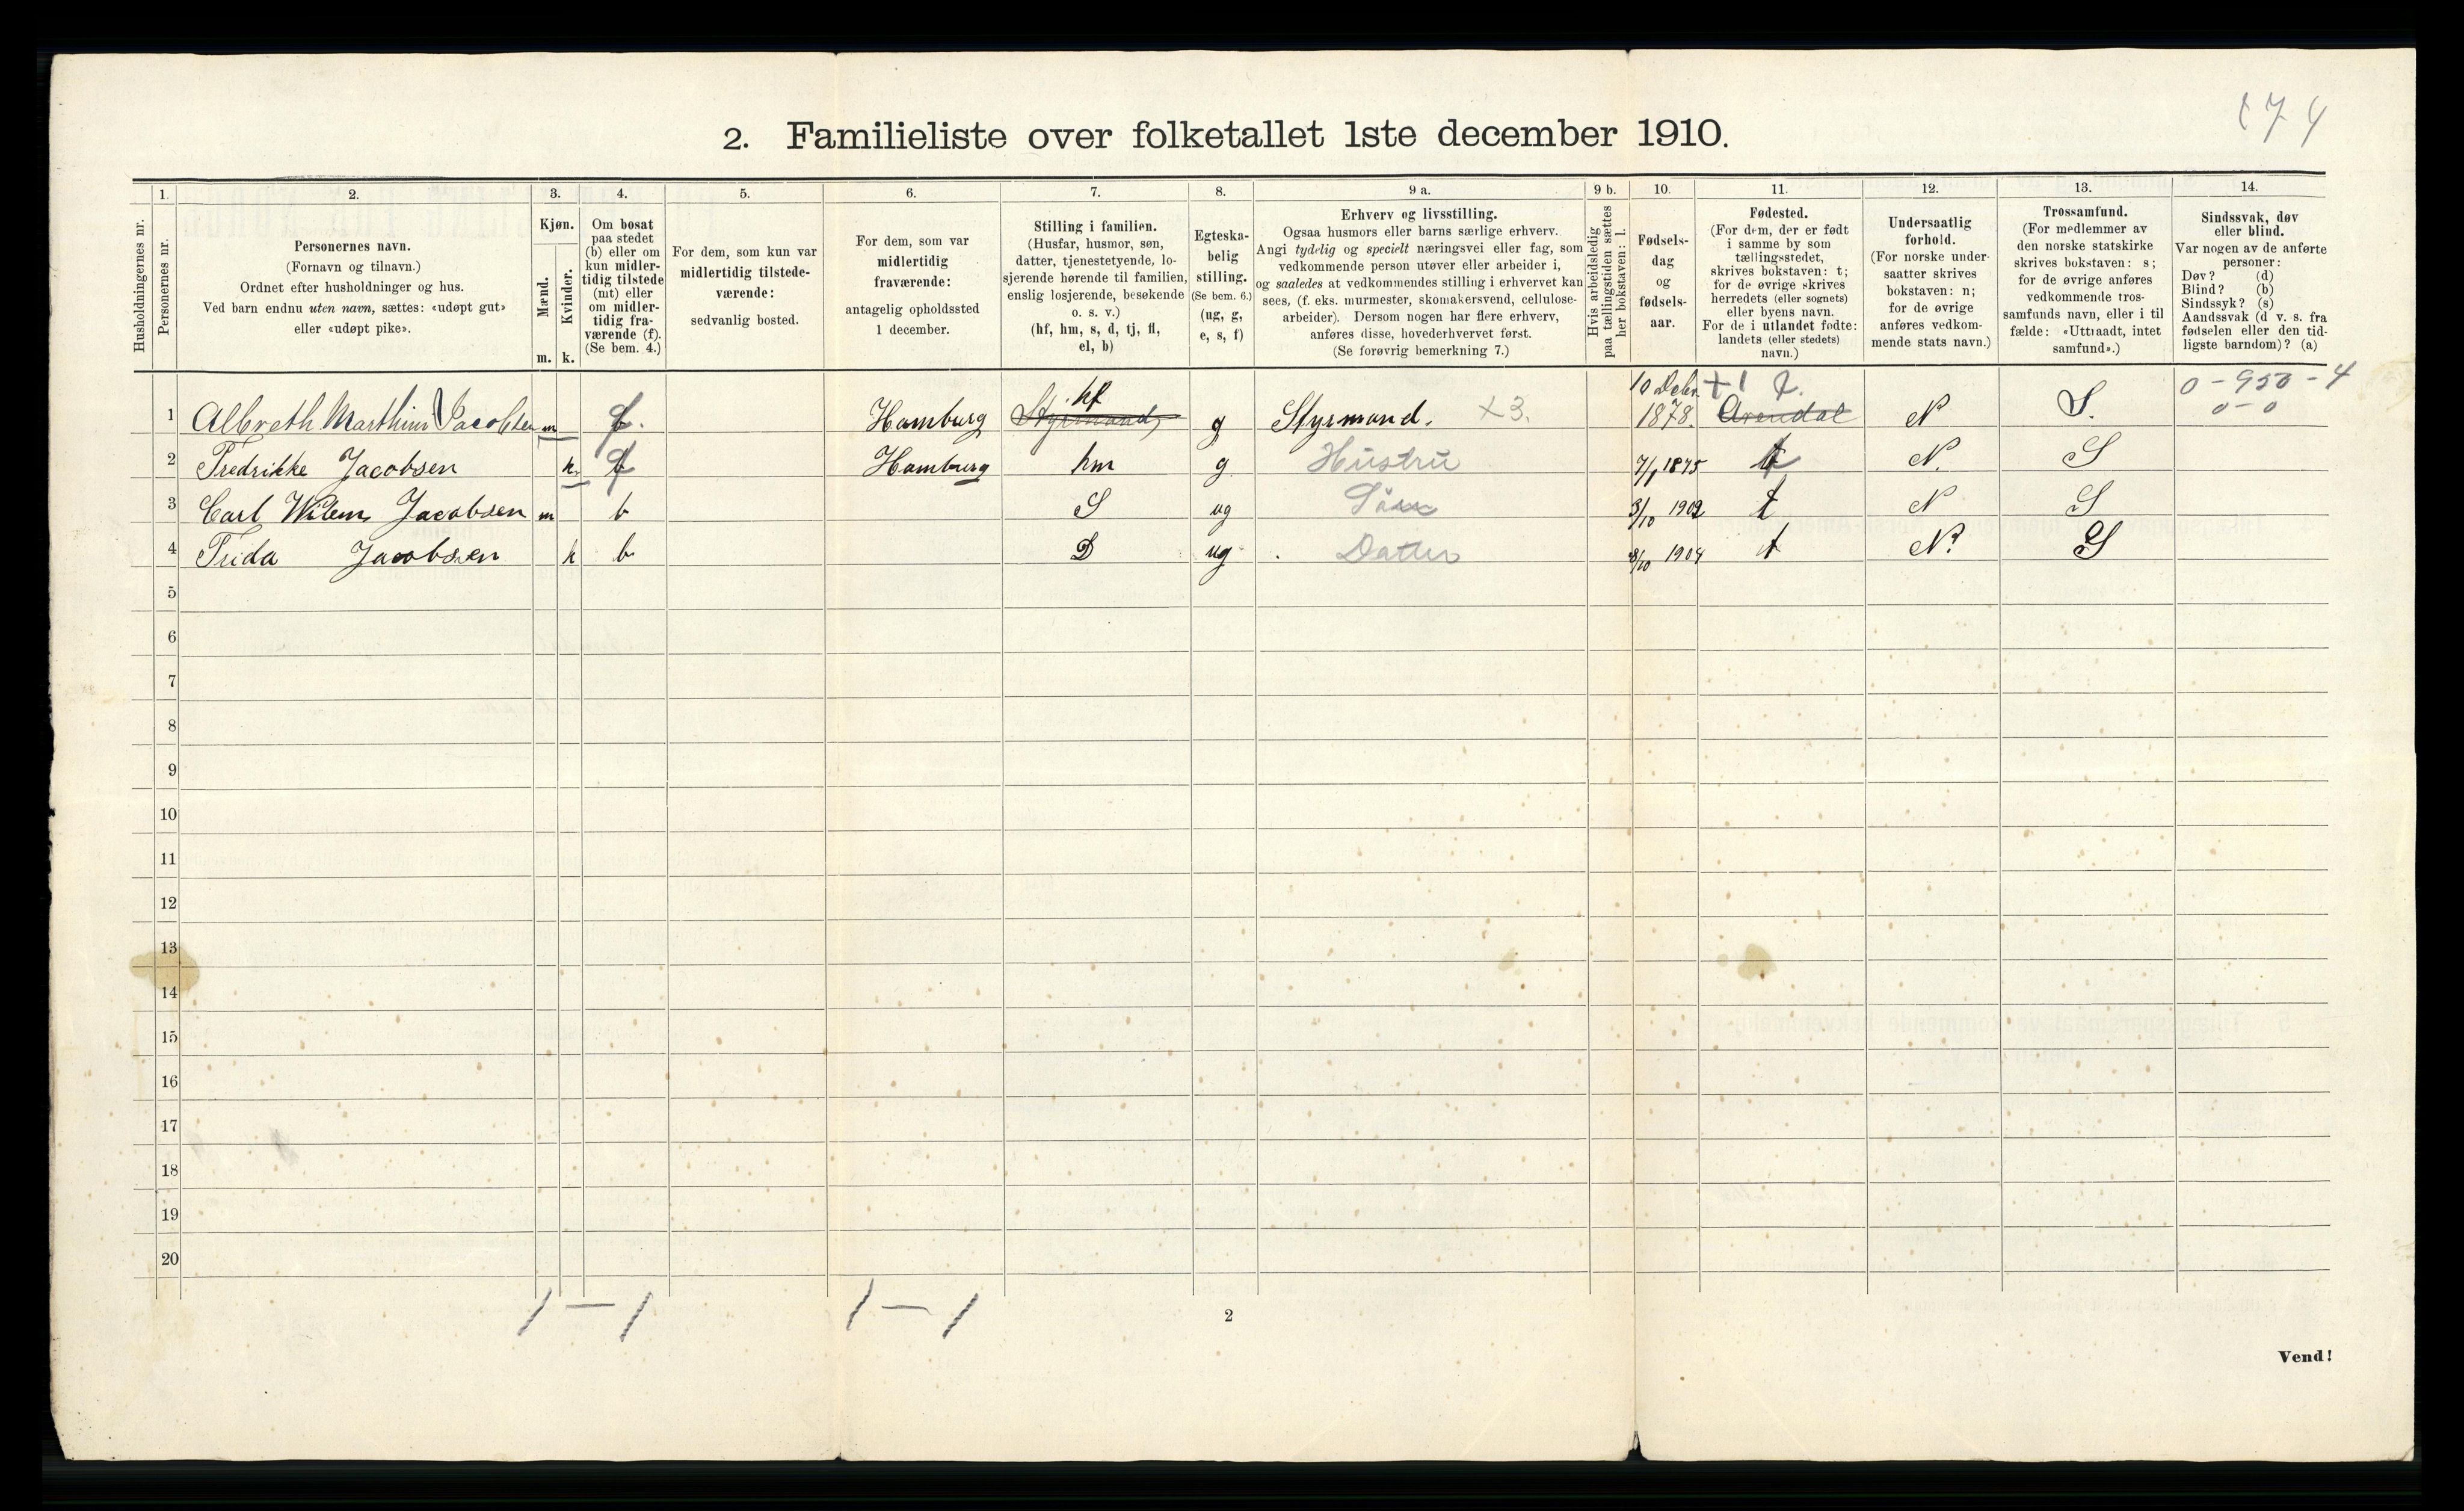 174
2. Familieliste over folketallet 1ste december 1910.
1. 2. 3. 4. 5. 6. 7. 8. 9 a. 9 b. 10. 11. 12. 13. 14.
Husholdningernes nr.
Personernes nr.
Personernes navn.
(Fornavn og tilnavn.)
Ordnet efter husholdninger og hus.
Ved barn endnu uten navn, sættes: «udøpt gut»
eller «udøpt pike».
Kjøn.
Mænd.
Kvinder.
m. k.
Om bosat
paa stedet
(b) eller om
kun midler-
tidig tilstede
(mt) eller
om midler-
tidig fra-
værende (f).
(Se bem. 4.)
For dem, som kun var
midlertidig tilstede-
værende:
sedvanlig bosted.
For dem, som var
midlertidig
fraværende:
antagelig opholdssted
1 december.
Stilling i familien.
(Husfar, husmor, søn,
datter, tjenestetyende, lo-
sjerende hørende til familien,
enslig losjerende, besøkende
o. s. v.)
(hf, hm, s, d, tj, fl,
el, b)
Egteska-
belig
stilling.
(Se bem. 6.)
(ug, g,
e, s, f)
Erhverv og livsstilling.
Ogsaa husmors eller barns særlige erhverv.
Angi tydelig og specielt næringsvei eller fag, som
vedkommende person utøver eller arbeider i,
og saaledes at vedkommendes stilling i erhvervet kan
sees, (f. eks. murmester, skomakersvend, cellulose-
arbeider). Dersom nogen har flere erhverv,
anføres disse, hovederhvervet først.
(Se forøvrig bemerkning 7.)
Hvis arbeidsledig
paa tællingstiden sættes
her bokstaven: l.
Fødsels-
dag
og
fødsels-
aar.
Fødested.
(For dem, der er født
i samme by som
tællingsstedet,
skrives bokstaven: t;
for de øvrige skrives
herredets (eller sognets)
eller byens navn.
For de i utlandet fødte:
landets (eller stedets)
navn.)
Undersaatlig
forhold.
(For norske under-
saatter skrives
bokstaven: n;
for de øvrige
anføres vedkom-
mende stats navn.)
Trossamfund.
(For medlemmer av
den norske statskirke
skrives bokstaven: s;
for de øvrige anføres
vedkommende tros-
samfunds navn, eller i til
fælde: «Uttraadt, intet
samfund».)
Sindssvak, døv
eller blind.
Var nogen av de anførte
personer:
Døv? (d)
Blind? (b)
Sindssyk? (s)
Aandssvak (d v. s. fra
fødselen eller den tid-
ligste barndom)? (a)
hf 10 Debr. +1 0-950-4
1 Albreth Marthini Jacobsen m f. Hamburg Styrmand g Styrmand. x3. 1878. Arendal N S. 0-0
2 Fredrikke Jacobsen k f Hamburg hm g Hustru 7/1 1875 t N. S
3 Carl Wilem Jacobsen m b S ug Søn 3/10 1902 t N S
4 Frida Jacobsen k b D ug Datter 8/10 1904 t N. S
5
6
7
8
9
10
11
12
13
14
15
16
17
18
19
20
1-1 1-1
2
Vend!